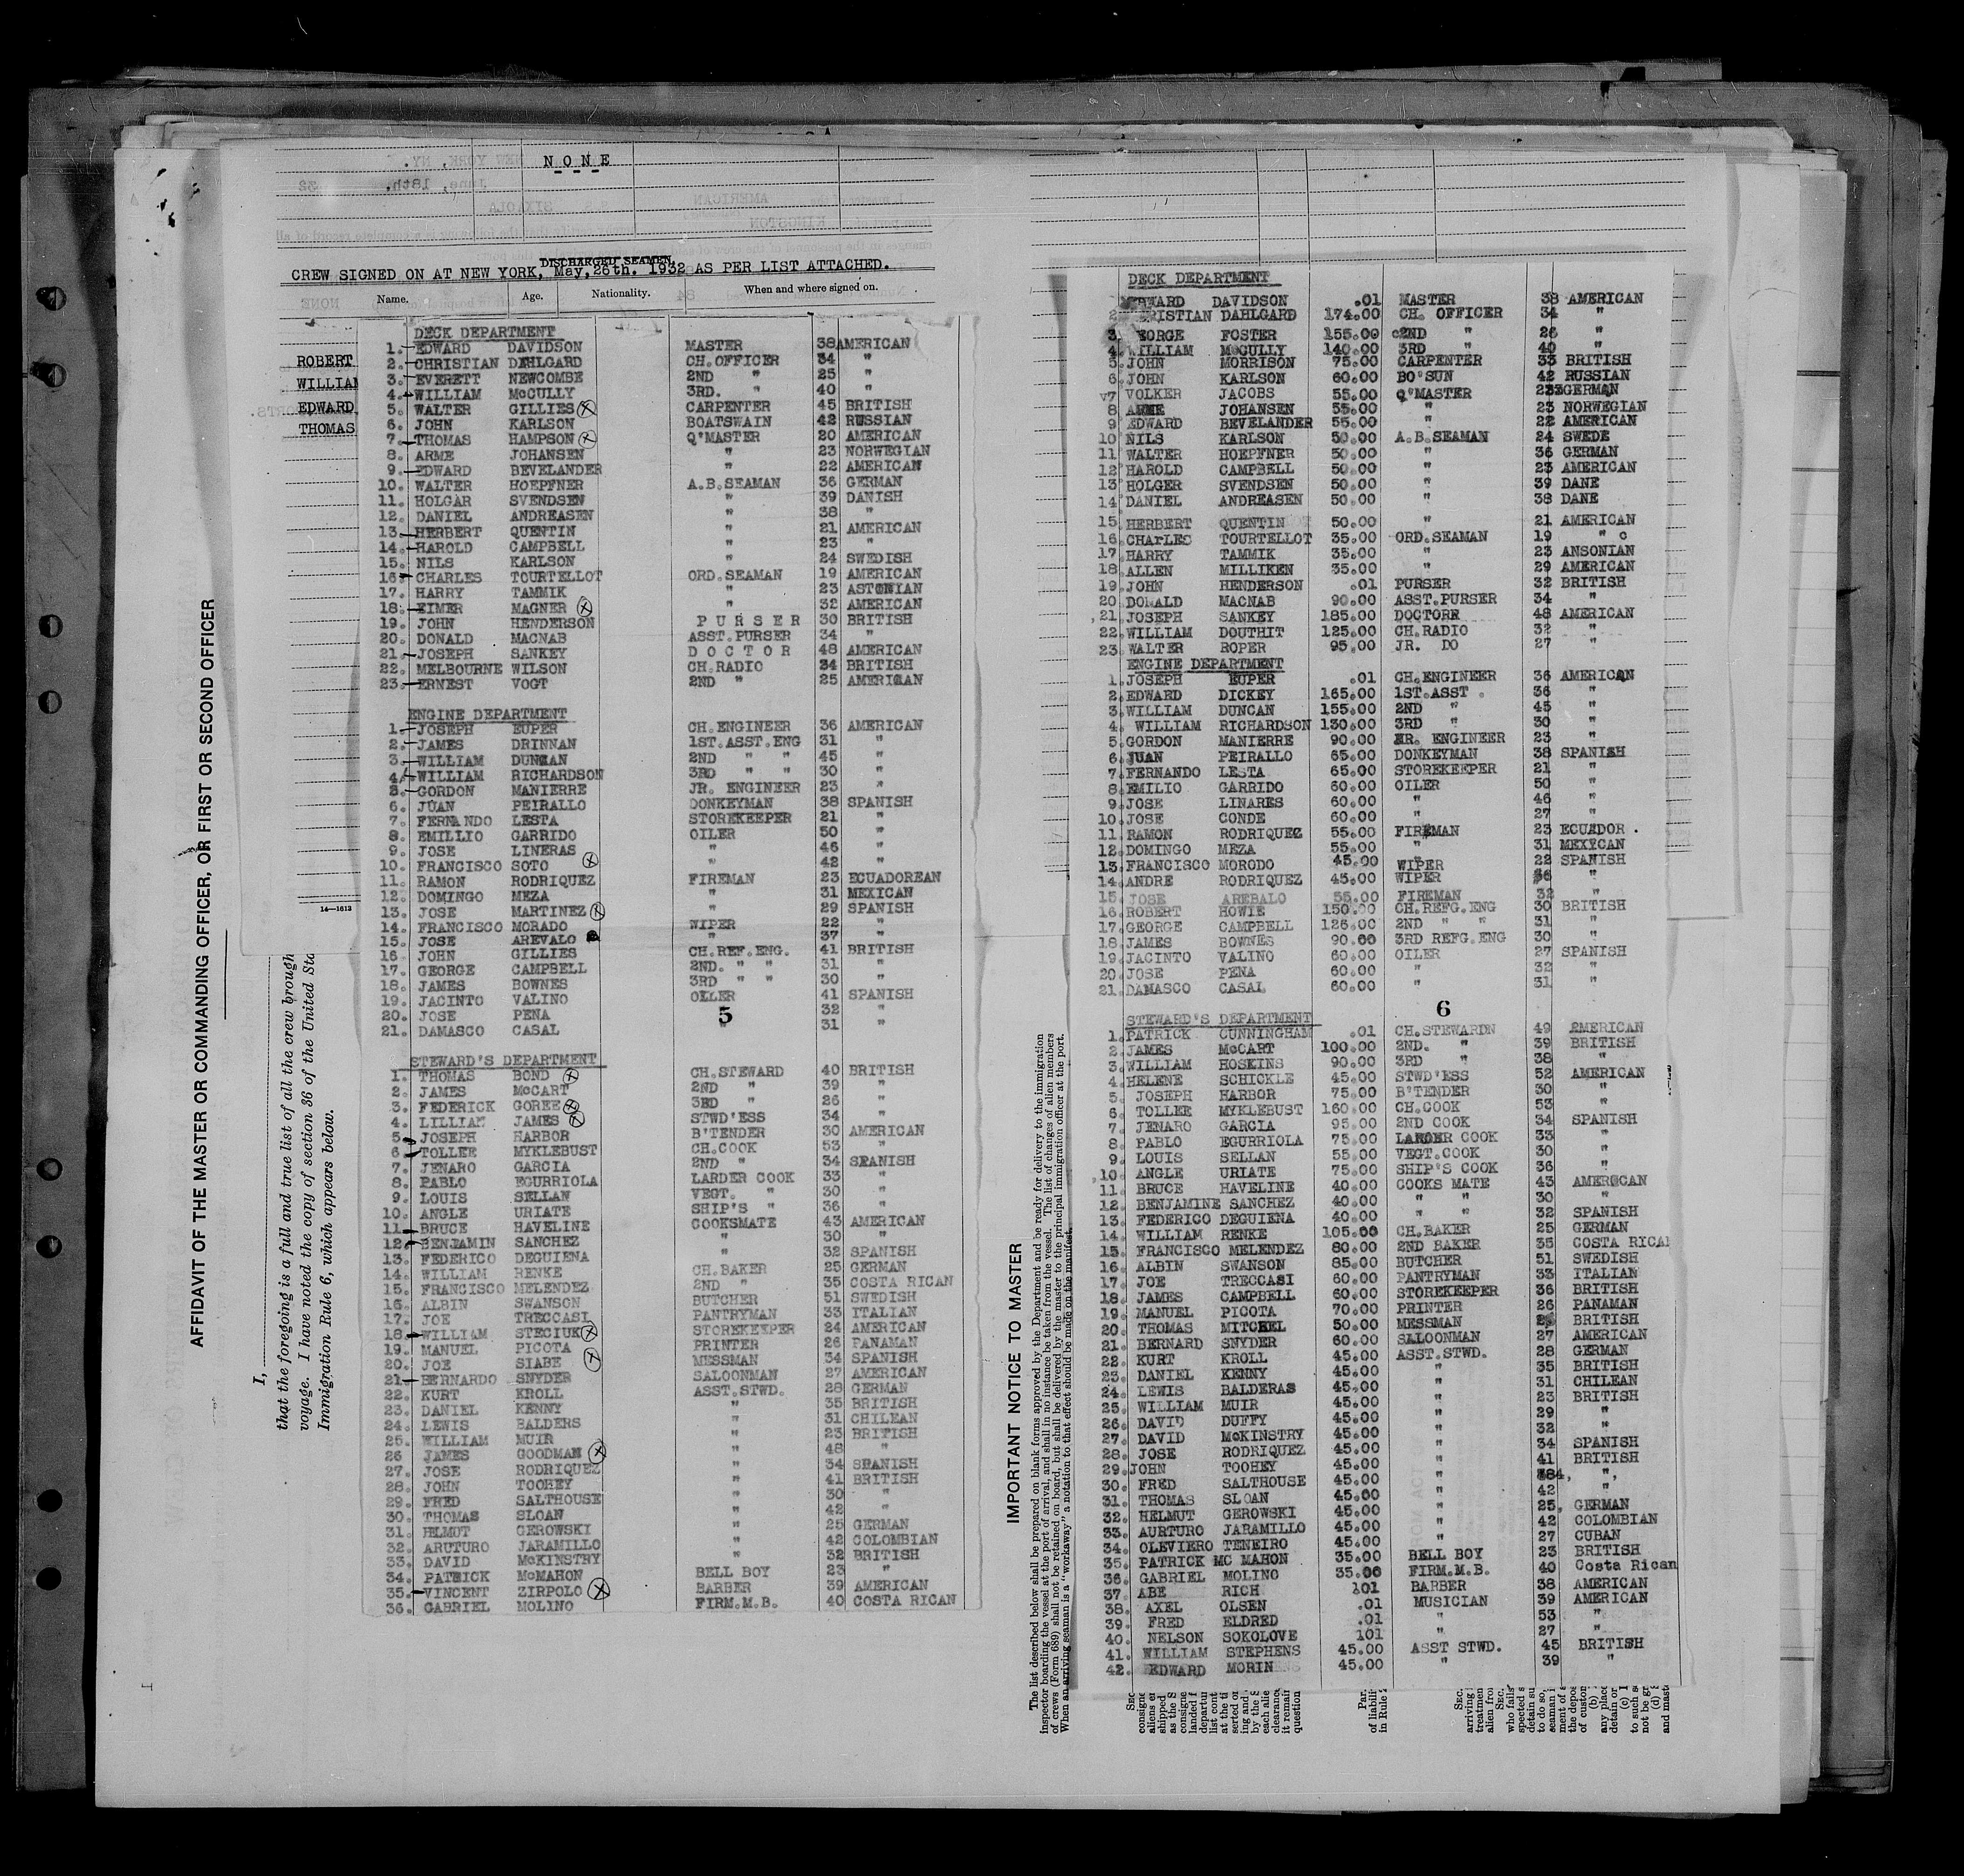 N O N E
CREW SIGNED ON AT NEW YORK, May,26th. 1932 AS PER LIST ATTACHED.
DISCHARGED SEAMEN.
Name. Age. Nationality. When and where signed on.
ROBERT
WILLIAM
EDWARD
THOMAS
14—1612
DECK DEPARTMENT
1. EDWARD DAVIDSON MASTER 38 AMERICAN
2. CHRISTIAN DEHLGARD CH.OFFICER 34 "
3. EVERETT NEWCOMBE 2ND " 25 "
4. WILLIAM McCULLY 3RD. " 40 "
5. WALTER GILLIES CARPENTER 45 BRITISH
6. JOHN KARLSON BOATSWAIN 42 RUSSIAN
7. THOMAS HAMPSON Q'MASTER 20 AMERICAN
8. ARME JOHANSEN " 23 NORWEGIAN
9. EDWARD BEVELANDER " 22 AMERICAN
10. WALTER HOEPFNER A.B.SEAMAN 36 GERMAN
11. HOLGAR SVENDSEN " 39 DANISH
12. DANIEL ANDREASEN " 38 "
13. HERBERT QUENTIN " 21 AMERICAN
14. HAROLD CAMPBELL " 23 "
15. NILS KARLSON " 24 SWEDISH
16. CHARLES TOURTELLOT ORD.SEAMAN 19 AMERICAN
17. HARRY TAMMIK " 23 ASTONIAN
18. EIMER MAGNER " 32 AMERICAN
19. JOHN HENDERSON P U R S E R 30 BRITISH
20. DONALD MACNAB ASST.PURSER 34 "
21. JOSEPH SANKEY D O C T O R 48 AMERICAN
22. MELBOURNE WILSON CH.RADIO 34 BRITISH
23. ERNEST VOGT 2ND " 25 AMERICAN
ENGINE DEPARTMENT
1. JOSEPH EUPER CH.ENGINEER 36 AMERICAN
2. JAMES DRINNAN 1ST.ASST.ENG 31 "
3. WILLIAM DUNCAN 2ND " " 45 "
4. WILLIAM RICHARDSON 3RD " " 30 "
5. GORDON MANIERRE JR. ENGINEER 23 "
6. JUAN PEIRALLO DONKEYMAN 38 SPANISH
7. FERNANDO LESTA STOREKEEPER 21 "
8. EMILLIO GARRIDO OILER 50 "
9. JOSE LINERAS " 46 "
10. FRANCISCO SOTO " 42 "
11. RAMON RODRIQUEZ FIREMAN 23 ECUADOREAN
12. DOMINGO MEZA " 31 MEXICAN
13. JOSE MARTINEZ " 29 SPANISH
14. FRANCISCO MORADO WIPER 22 "
15. JOSE AREVALO " 37 "
16. JOHN GILLIES CH.REF.ENG. 41 BRITISH
17. GEORGE CAMPBELL 2ND. " " 31 "
18. JAMES BOWNES 3RD " " 30 "
19. JACINTO VALINO OILER 41 SPANISH
20. JOSE PENA 32 "
21. DAMASCO CASAL 31 "
5
STEWARD'S DEPARTMENT
1. THOMAS BOND CH.STEWARD 40 BRITISH
2. JAMES McCART 2ND " 39 "
3. FEDERICK GOREE 3RD " 26 "
4. LILLIAN JAMES STWD'ESS 34 "
5. JOSEPH HARBOR B'TENDER 30 AMERICAN
6. TOLLEE MYKLEBUST CH.COOK 53 "
7. JENARO GARCIA 2ND " 34 SPANISH
8. PABLO EGURRIOLA LARDER COOK 33 "
9. LOUIS SELLAN VEGT. " 30 "
10. ANGLE URIATE SHIP'S " 36 "
11. BRUCE HAVELINE COOKSMATE 43 AMERICAN
12. BENJAMIN SANCHEZ " 30 "
13. FEDERICO DEGUIENA " 32 SPANISH
14. WILLIAM RENKE CH.BAKER 25 GERMAN
15. FRANCISCO MELENDEZ 2ND " 35 COSTA RICAN
16. ALBIN SWANSON BUTCHER 51 SWEDISH
17. JOE TRECCASI PANTRYMAN 33 ITALIAN
18. WILLIAM STECIUK STOREKEEPER 24 AMERICAN
19. MANUEL PICOTA PRINTER 26 PANAMAN
20. JOE SIABE MESSMAN 34 SPANISH
21. BERNARDO SNYDER SALOONMAN 27 AMERICAN
22. KURT KROLL ASST.STWD. 28 GERMAN
23. DANIEL KENNY " 35 BRITISH
24. LEWIS BALDERS " 31 CHILEAN
25. WILLIAM MUIR " 23 BRITISH
26 JAMES GOODMAN " 48 "
27. JOSE RODRIQUEZ " 34 SPANISH
28. JOHN TOOHEY " 41 BRITISH
29. FRED SALTHOUSE " 30 "
30. THOMAS SLOAN " 42 "
31. HELMUT GEROWSKI " 25 GERMAN
32. ARUTURO JARAMILLO " 42 COLOMBIAN
33. DAVID McKINSTRY " 32 BRITISH
34. PATRICK McMAHON BELL BOY 23 "
35. VINCENT ZIRPOLO BARBER 39 AMERICAN
36. GABRIEL MOLINO FIRM.M.B. 40 COSTA RICAN
DECK DEPARTMENT
EDWARD DAVIDSON .01 MASTER 38 AMERICAN
2. CHRISTIAN DAHLGARD 174.00 CH. OFFICER 34 "
3. GEORGE FOSTER 155.00 2ND " 26 "
4. WILLIAM McCULLY 140.00 3RD " 40 "
5. JOHN MORRISON 75.00 CARPENTER 33 BRITISH
6. JOHN KARLSON 60.00 BO'SUN 42 RUSSIAN
7 VOLKER JACOBS 55.00 Q'MASTER GERMAN
8 ARME JOHANSEN 55.00 " 23 NORWEGIAN
9 EDWARD BEVELANDER 55.00 " 22 AMERICAN
10 NILS KARLSON 50.00 A.B.SEAMAN 24 SWEDE
11 WALTER HOEPFNER 50.00 " 36 GERMAN
12 HAROLD CAMPBELL 50.00 " 23 AMERICAN
13 HOLGER SVENDSEN 50.00 " 39 DANE
14 DANIEL ANDREASEN 50.00 " 38 DANE
15. HERBERT QUENTIN 50.00 " 21 AMERICAN
16. CHArLES TOURTELLOT 35.00 ORD.SEAMAN 19 "
17. HARRY TAMMIK 35.00 " 23 ANSONIAN
18. ALLEN MILLIKEN 35.00 " 29 AMERICAN
19. JOHN HENDERSON .01 PURSER 32 BRITISH
20. DONALD MACNAB 90.00 ASST.PURSER 34 "
21. JOSEPH SANKEY 185.00 DOCTORE 48 AMERICAN
22. WILLIAM DOUTHIT 125.00 CH.RADIO 32 "
23. WALTER ROPER 95.00 JR. DO 27 "
ENGINE DEPARTMENT
1. JOSEPH EUPER .01 CH.ENGINEER 36 AMERICAN
2. EDWARD DICKEY 165.00 1ST.ASST. 36 "
3. WILLIAM DUNCAN 155.00 2ND " 45 "
4. WILLIAM RICHARDSON 130.00 3RD " 30 "
5. GORDON MANIERRE 90.00 JR. ENGINEER 23 "
6. JUAN PEIRALLO 65.00 DONKEYMAN 38 SPANISH
7. FERNANDO LESTA 65.00 STOREKEEPER 21 "
8. EMILIO GARRIDO 60.00 OILER 50 "
9. JOSE LINARES 60.00 " 46 "
10. JOSE CONDE 60.00 " 27 "
11. RAMON RODRIQUEZ 55.00 FIREMAN 23 ECUADOR.
12. DOMINGO MEZA 55.00 " 31 MEXICAN
13. FRANCISCO MORODO 45.00 WIPER 22 SPANISH
14. ANDRE RODRIQUEZ 45.00 WIPER 36 "
15. JOSE AREBALO 55.00 FIREMAN 32 "
16. ROBERT HOWIE 150.00 CH.REFG.ENG 30 BRITISH
17. GEORGE CAMPBELL 126.00 2ND " " 31 "
18. JAMES BOWNES 90.00 3RD REFG.ENG 30 "
19. JACINTO VALINO 60.00 OILER 27 SPANISH
20. JOSE PENA 60.00 " 32 "
21. DAMASCO CASAL 60.00 " 31 "
6
STEWARD'S DEPARTMENT
1. PATRICK CUNNINGHAM .01 CH.STEWARDN 49 AMERICAN
2. JAMES McCART 100.00 2ND. " 39 BRITISH
3. WILLIAM HOSKINS 90.00 3RD " 38 "
4. HELENE SCHICKLE 45.00 STWD'ESS 52 AMERICAN
5. JOSEPH HARBOR 75.00 B'TENDER 30 "
6. TOLLEE MYKLEBUST 160.00 CH.COOK 53 "
7. JENARO GARCIA 95.00 2ND COOK 34 SPANISH
8. PABLO EGURRIOLA 75.00 LARDER COOK 33 "
9. LOUIS SELLAN 55.00 VEGT.COOK 30 "
10. ANGLE URIATE 75.00 SHIP'S COOK 36 "
11. BRUCE HAVELINE 40.00 COOKS MATE 43 AMERICAN
12. BENJAMINE SANCHEZ 40.00 " " 30 "
13. FEDERICO DEGUIENA 40.00 " " 32 SPANISH
14. WILLIAM RENKE 105.00 CH.BAKER 25 GERMAN
15. FRANCISCO MELENDEZ 80.00 2ND BAKER 35 COSTA RICAN
16. ALBIN SWANSON 85.00 BUTCHER 51 SWEDISH
17. JOE TRECCASI 60.00 PANTRYMAN 33 ITALIAN
18. JAMES CAMPBELL 60.00 STOREKEEPER 36 BRITISH
19. MANUEL PICOTA 70.00 PRINTER 26 PANAMAN
20. THOMAS MITCHEL 50.00 MESSMAN BRITISH
21. BERNARD SNYDER 60.00 SALOONMAN 27 AMERICAN
22. KURT KROLL 45.00 ASST.STWD. 28 GERMAN
23. DANIEL KENNY 45.00 " 35 BRITISH
24. LEWIS BALDERAS 45.00 " 31 CHILEAN
25. WILLIAM MUIR 45.00 " 23 BRITISH
26. DAVID DUFFY 45.00 " 29 "
27. DAVID McKINSTRY 45.00 " 32 "
28. JOSE RODRIQUEZ 45.00 " 34 SPANISH
29. JOHN TOOHEY 45.00 " 41 BRITISH
30. FRED SALTHOUSE 45.00 " "
31. THOMAS SLOAN 45.00 " 42 "
32. HELMUT GEROWSKI 45.00 " 25. GERMAN
33. AURTURO JARAMILLO 45.00 " 42 COLOMBIAN
34. OLEVIERO TENEIRO 45.00 " 27 CUBAN
35. PATRICK MC MAHON 35.00 BELL BOY 23 BRITISH
36. GABRIEL MOLINO 35.00 FIRM.M.B. 40 Costa Rican
37 ABE RICH 101 BARBER 38 AMERICAN
38. AXEL OLSEN .01 MUSICIAN 39 AMERICAN
39. FRED ELDRED .01 " 53 "
40. NELSON SOKOLOVE 101 " 27 "
41. WILLIAM STEPHENS 45.00 ASST STWD. 45 BRITISH
42. EDWARD MORIN 45.00 " 39 "
AFFIDAVIT OF THE MASTER OR COMMANDING OFFICER, OR FIRST OR SECOND OFFICER
I,
that the foregoing is a full and true list of all the crew brough
voyage. I have noted the copy of section 36 of the United Sta
Immigration Rule 6, which appears below.
IMPORTANT NOTICE TO MASTER
The list described below shall be prepared on blank forms approved by the Department and be ready for delivery to the immigration
inspector boarding the vessel at the port of arrival, and shall in no instance be taken from the vessel. The list of changes of alien members
of crews (Form 689) shall not be retained on board, but shall be delivered by the master to the principal immigration officer at the port.
When an arriving seaman is a "workaway" a notation to that effect should be made on the manifest.